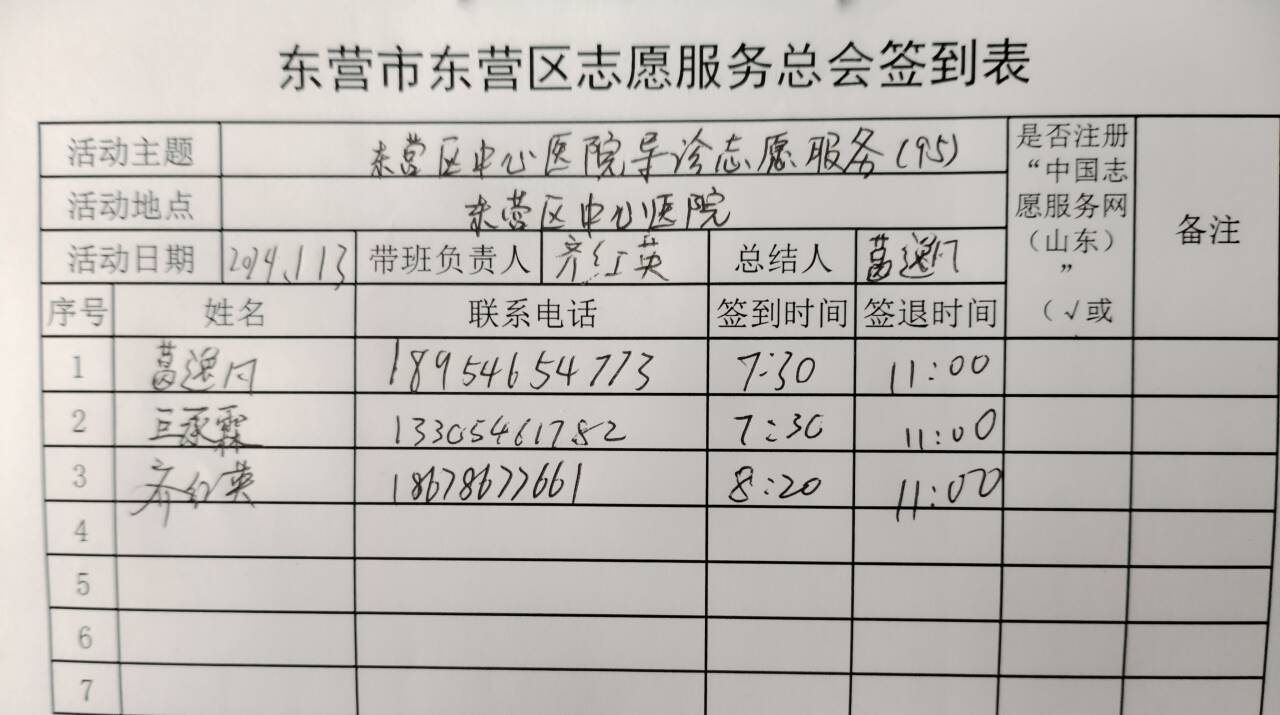 东营市东营区志愿服务总会签到表
活动主题 东营区中心医院导诊志愿服务(95)
活动地点 东营区中心医院
活动日期 带班负责人 齐红英 总结人
是否注册
“中国志
愿服务网
(山东)
”
(√或
备注
序号 姓名 联系电话 签到时间 签退时间
1 18954654773 7:30 11:00
2 13305461782 7:30 11:00
3 齐红英 18678677661 8:20 11:00
4
5
6
7